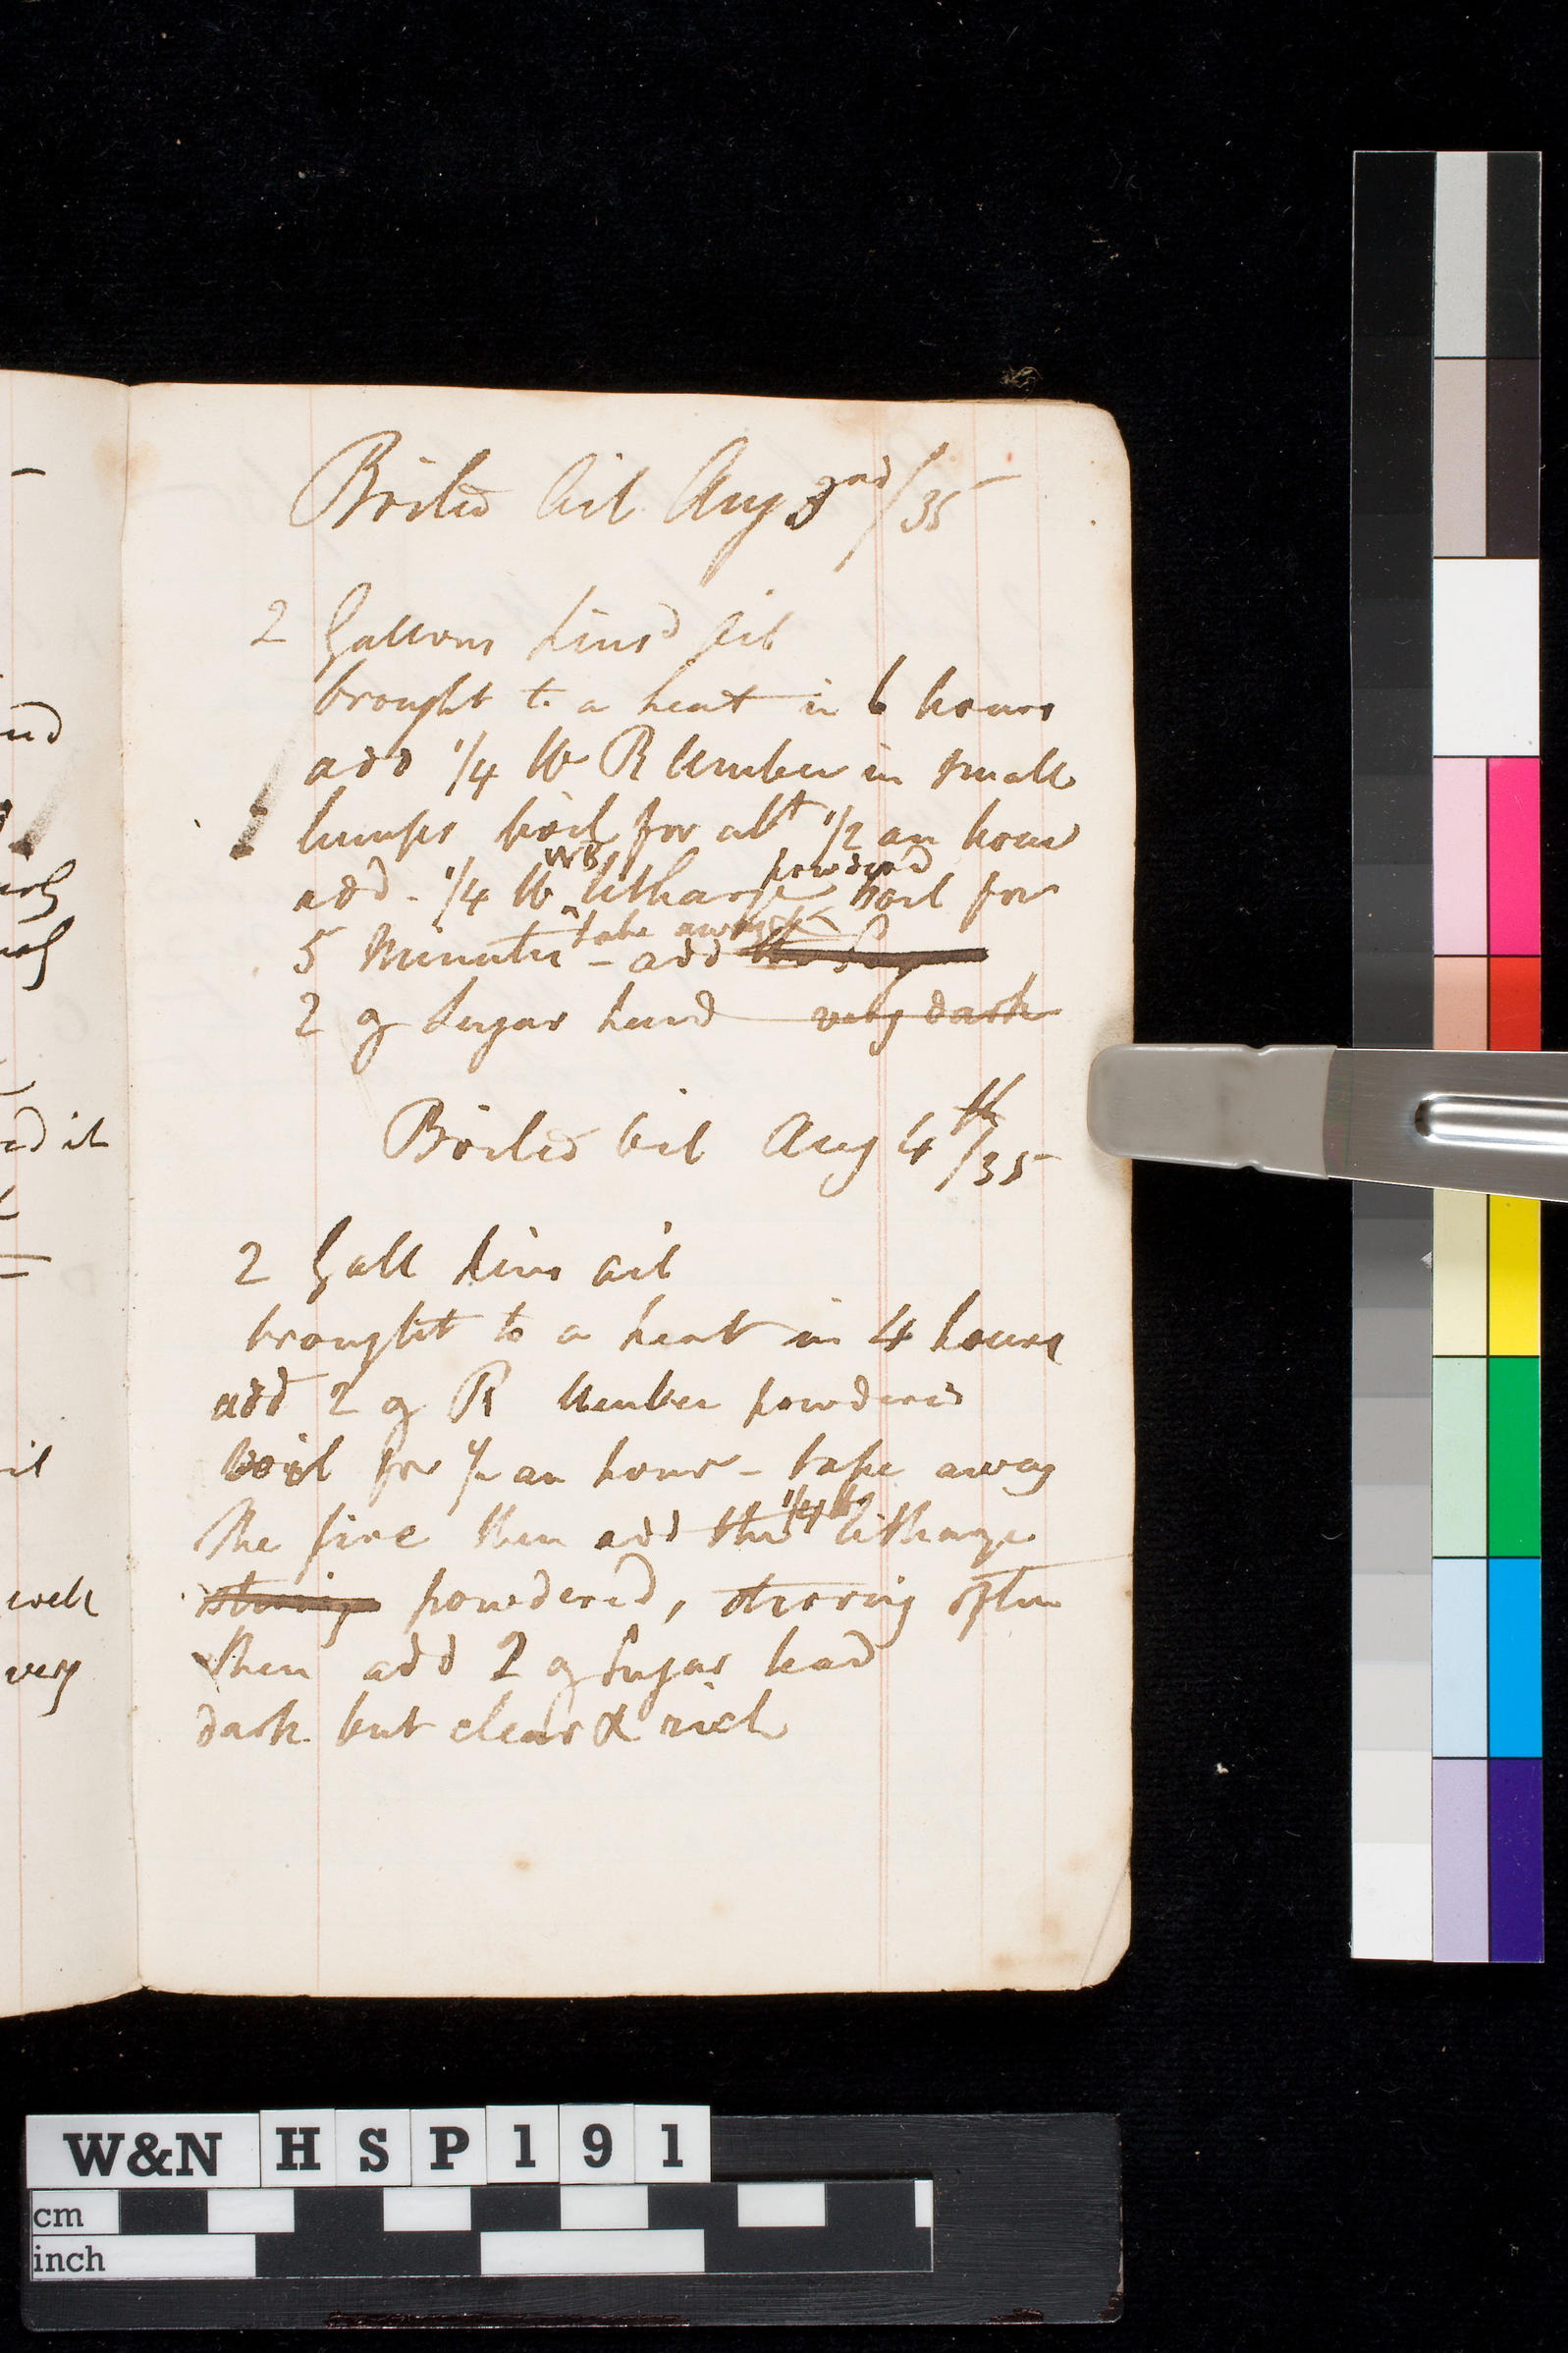 Boiled Oil Aug 3rd/35
2 Gallons Linsd Oil
brought to a heat in 6 hours
add 1/4 lb R Umber in small
lumps boil for abt 1/2 an hour
WB powdered
add 1/4 lb litharge boil for
take away
5 Minutes – add the Sugar
2 g Sugar lead very dark
Boiled Oil Aug 4th/35
2 Gall Lins oil
brought to a heat in 4 hours
add 2 g R Umber powdered
boil for 1/2 an hour – take away
1/4 lb
the fire then add the litharge
stirring powdered, stirring often
then add 2 g Sugar lead
dark but clear & rich
ed it
well
very
W&N HSP191
cm
inch